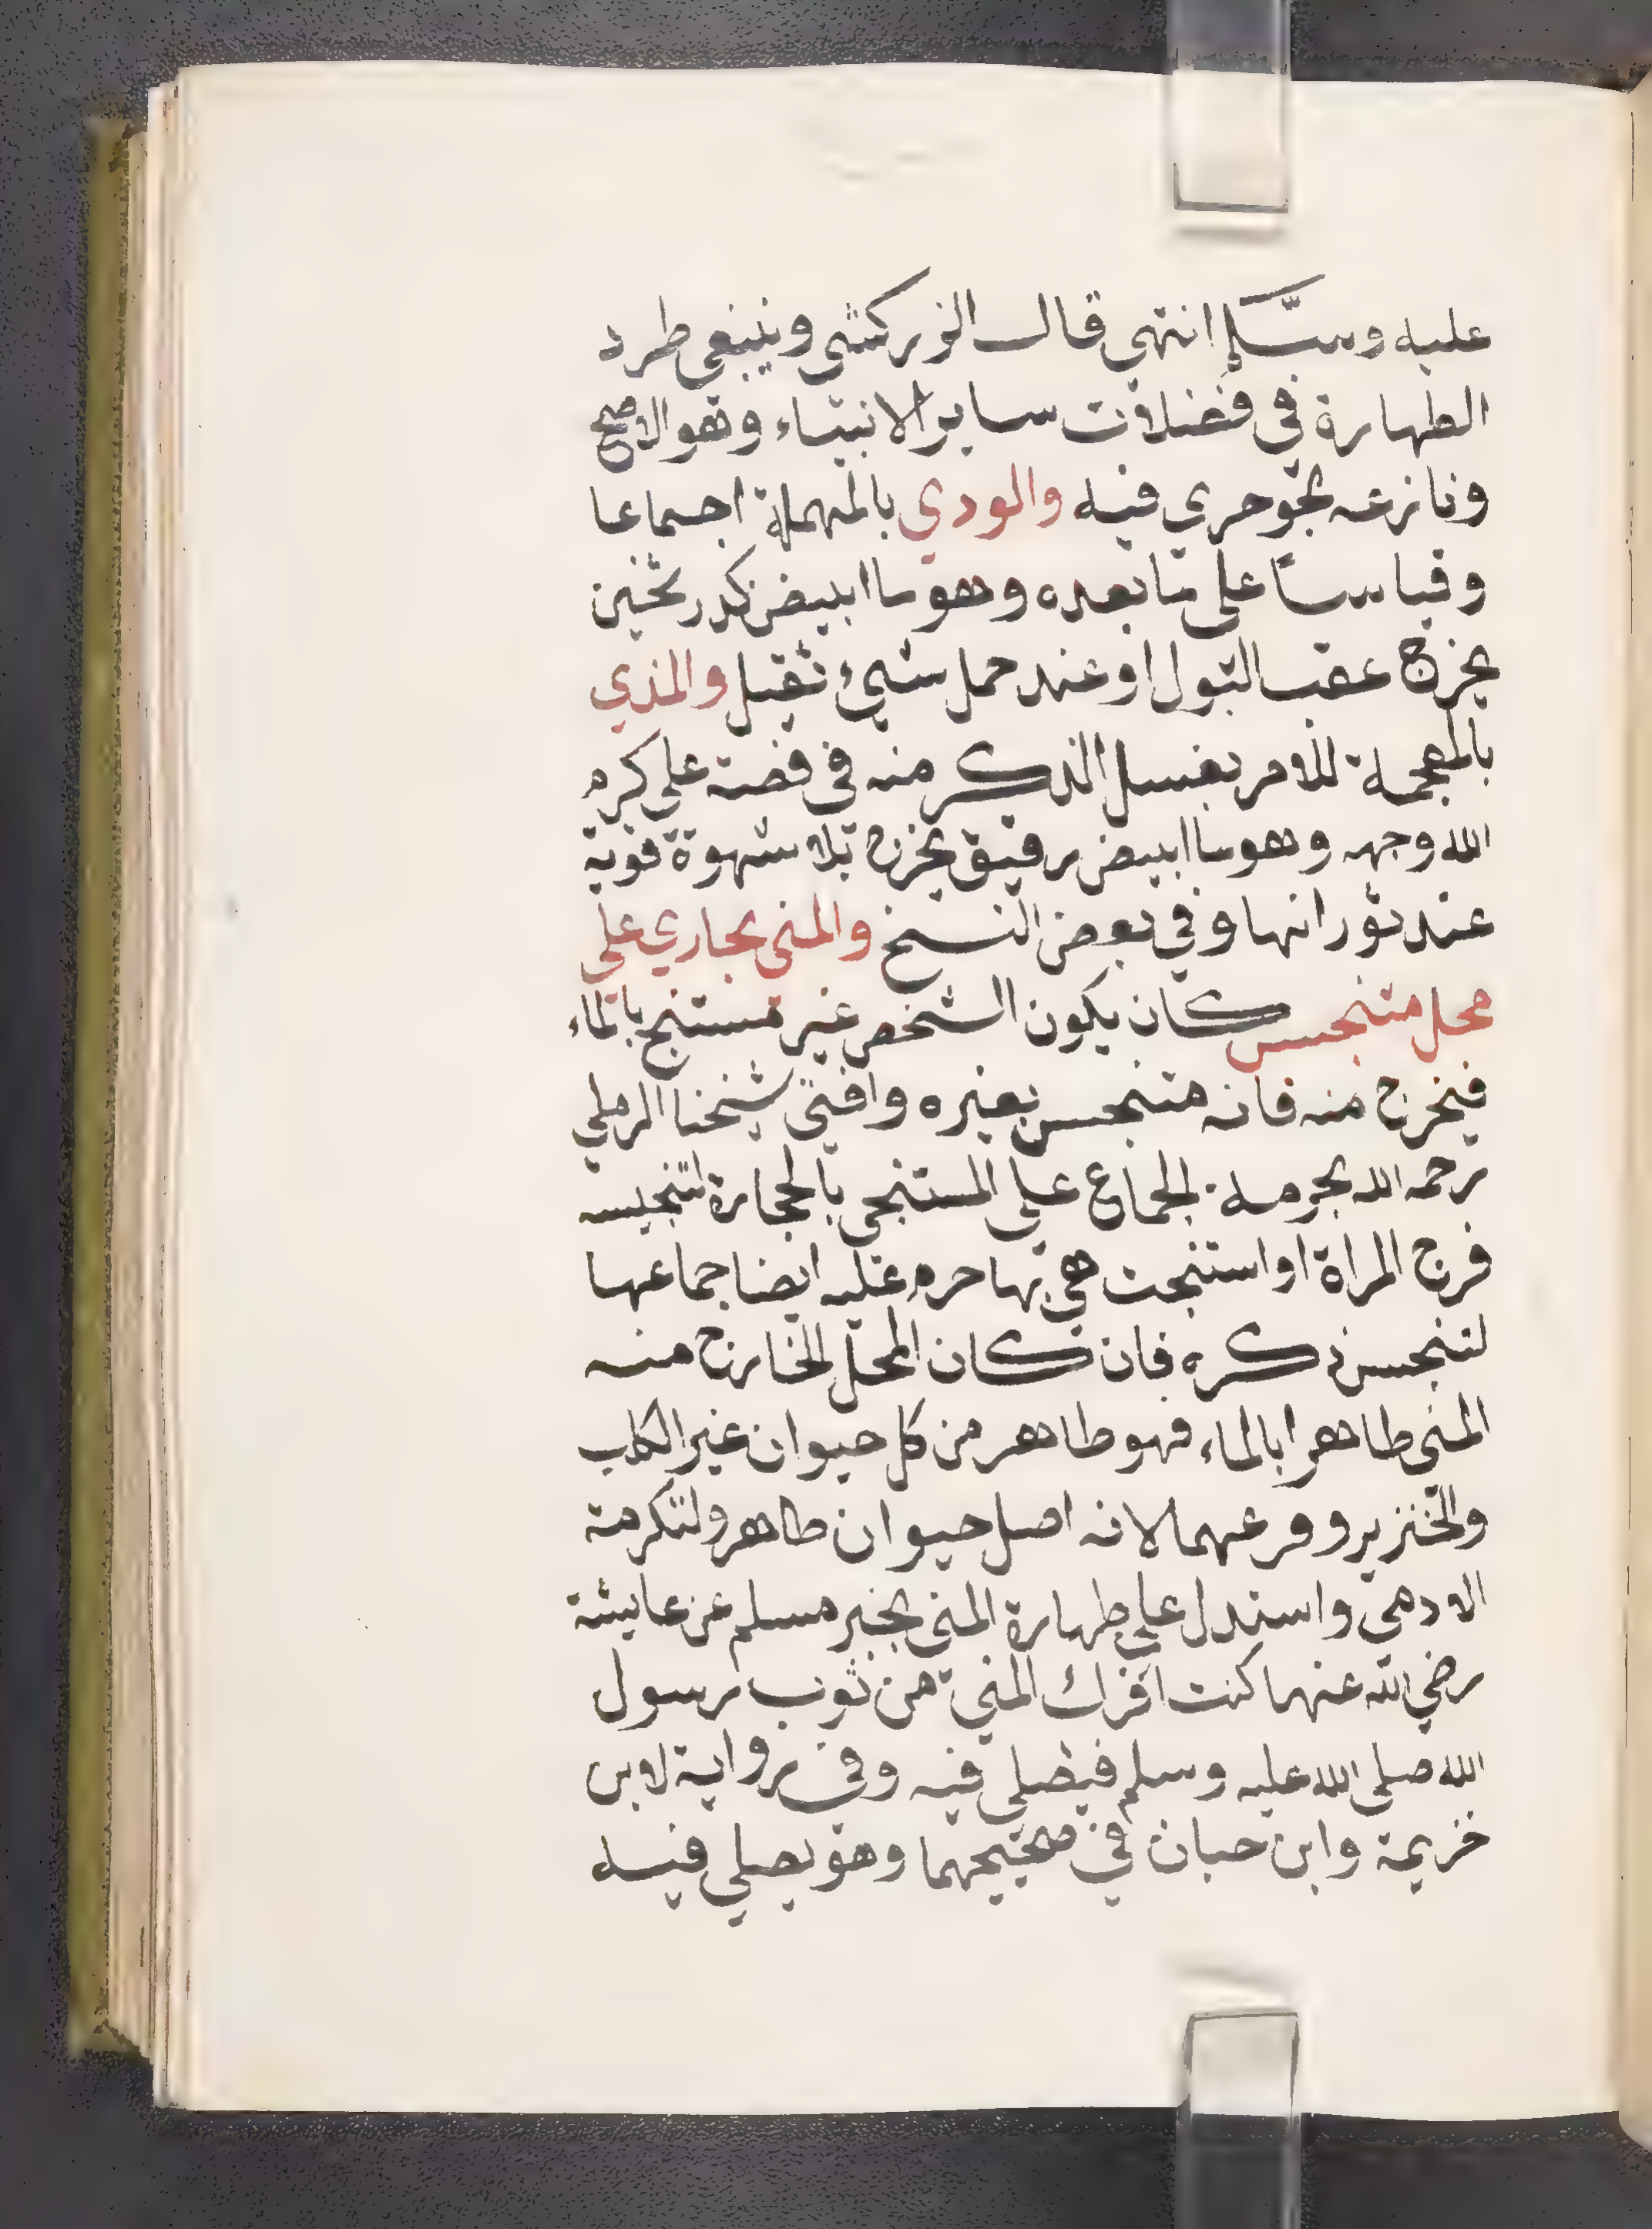 عليه وسلم انتهي قال الزركشي وينبغي طرد
الطهارة في فضلات ساير الانبياء وهو الاصح
ونازعه الجوجري فيه والودي بالمهملة اجماعا
وقياسا على ما بعده وهو ما ابيض كدر ثخين
يخرج عقب البول او عند حمل شيء ثقيل والمذي
بالمعجمة للامر بغسل الذكر منه في قصة علي كرم
الله وجهه وهو ما ابيض رقيق يخرج بلا شهوة قوية
عند ثورانها وفي بعض النسخ والمني الجاري على
محل متنجس كان يكون الشخص غير مستنج بالماء
فيخرج منه فانه متنجس بغيره وافتى شيخنا الرملي
رحمه الله بحرمة الجماع على المستنجي بالحجارة لتنجيسه
فرج المراة او استنجت هي بها حرم عليه ايضا جماعها
لتنجس ذكره فان كان المحل الخارج منه
المني طاهرا بالماء فهو طاهر من كل حيوان غير الكلب
والخنزير وفرعهما لانه اصل حيوان طاهر ولتكرمة
الادمي واستدل على طهارة المني بخبر مسلم عن عايشة
رضي الله عنها كنت افرك المني من ثوب رسول
الله صلى الله عليه وسلم فيصلي فيه وفي رواية لابن
خزيمة وابن حبان في صحيحيهما وهو يصلي فيه